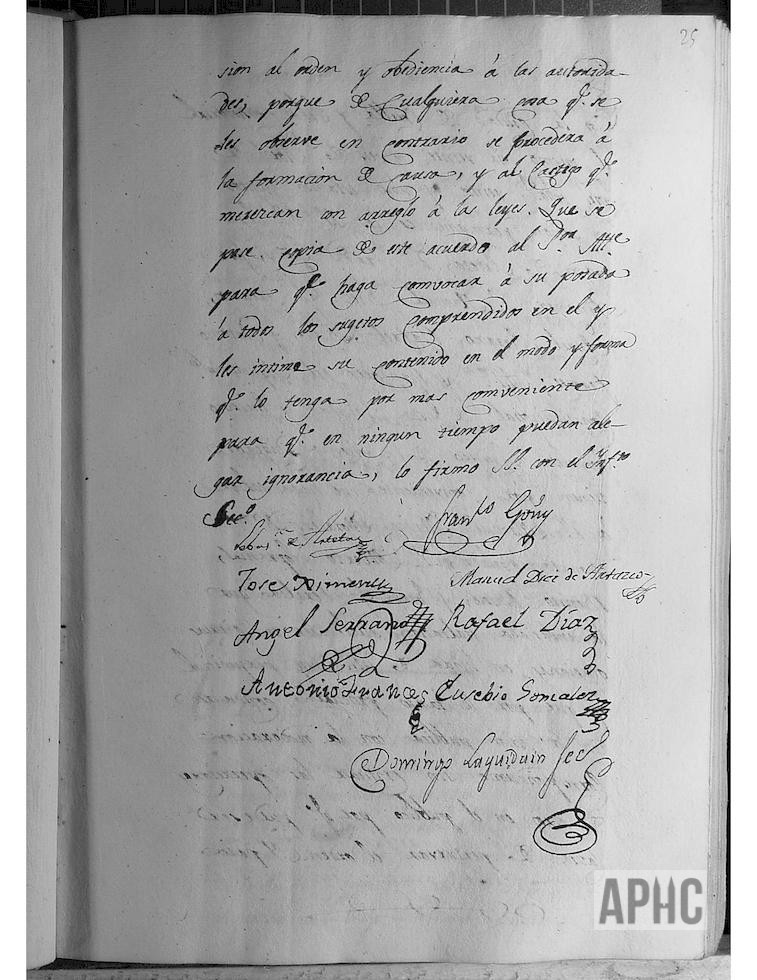 25
sion al orden y obediencia á las autorida-
des, porque de Cualquiera cosa qe. se
les observe en contrario se procederá á
la formacion de causa, y al Castigo qe.
merezcan con arreglo á las leyes. Que se
pase copia de este acuerdo al Sor. Alle.
para qe. haga convocar á su posada
á todos los sugetos Comprendidos en el y
les intime su contenido en el modo y forma
qe. lo tenga por mas conveniente
para qe. en ningun tiempo puedan ale-
gar ignorancia, lo firmo SS. con el Infto.
Seco.
Franco Goñy
Jose Ximenez Manuel Diez de
Angel Serrano Rafael Díaz
Antonio Frances Eusebio Gomalez
Domingo Laquidain Sec
APHC